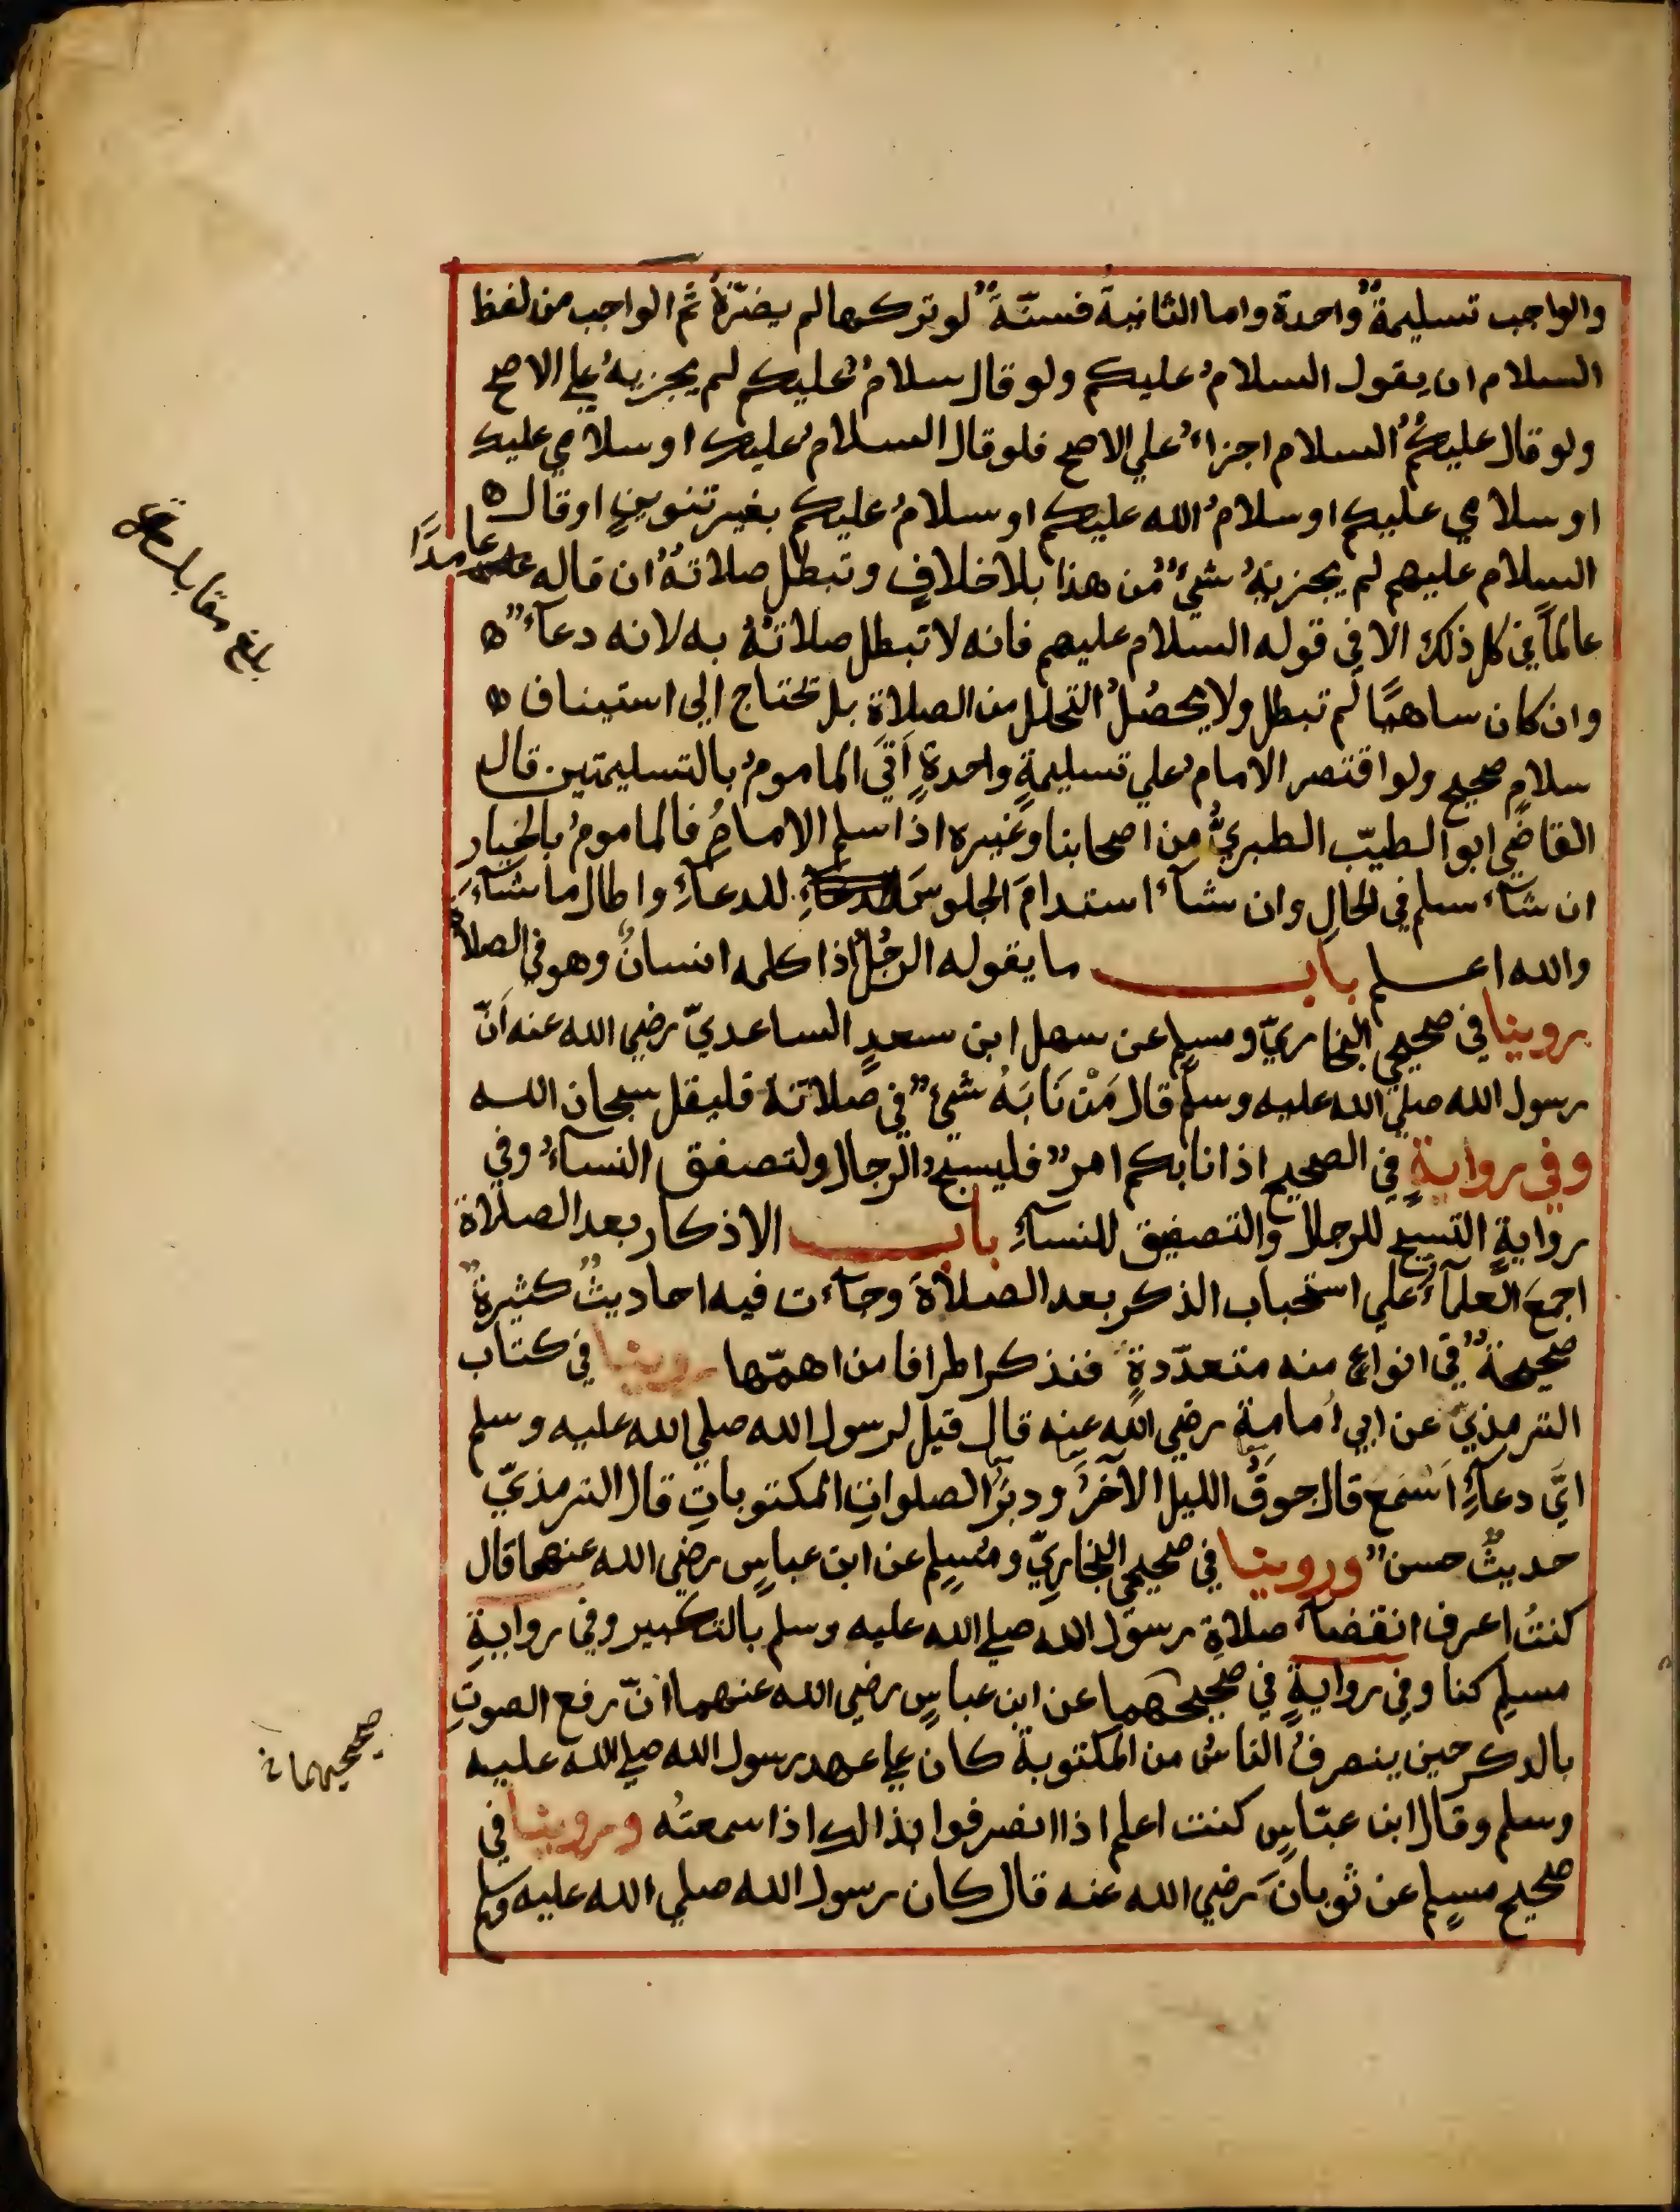 والواجب تسليمةٌ واحدة واما الثانية فسنّةٌ لو تركها لم يضرّهُ ثم الواجب من لفظ
السلام ان يقول السلامُ عليكم ولو قال سلامٌ عليكم لم يجزيهُ علي الاصح
ولو قال عليكُمُ السلام اجزاءُ علي الاصح فلو قال السلامُ عليك او سلامي عليك
او سلامي عليكم او سلامُ الله عليكم او سلامُ عليكم بغير تنوينٍ او قال ه
السلام عليهم لم يجزيهُ شيءٌ من هذا بلا خلافٍ وتبطل صلاتهُ ان قاله عامدًا
عالماً في كل ذلك الا في قوله السلام عليهم فانه لا تبطل صلاتهُ به لانه دعآءٌ ه
وان كان ساهيًا لم تبطل ولا يحصُلُ التحلل من الصلاةِ بل تحتاج الي استيناف ه
سلامٍ صحيح ولو اقتصر الامامُ علي تسليمةٍ واحدةٍ اَتَي الماموُمُ بالتسليمتين قال
القاضي ابو الطيّب الطبريُّ من اصحابنا وغيره اذا سلم الامامُ فالمامومُ بالخيارِ
ان شآءَ سلم في الحالِ وان شآءَ استدامَ الجلوسَ للدعآءِ واطال ما شآءَ
والله اعلم باب ما يقوله الرجُلُ اذا كلمه انسانٌ وهو في الصلاة
روينا في صحيحي البخاريّ ومسلمٍ عن سهل ابن سعدٍ الساعديّ رضي الله عنه اَنّ
رسول الله صلي الله عليه وسلم قال مَنْ نَابَهُ شيءٌ في صلاته فليقل سبحان الله
وفي روايةٍ في الصحيح اذا نابكم امرٌ فليسبح الرجال ولتصفق النسآءُ وفي
روايةٍ التسبيح للرجال والتصفيق للنسآءِ باب الاذكار بعد الصلاة
اجمعَ العلمآءُ علي استحباب الذكر بعد الصلاة وجآءت فيه احاديثٌ كثيرةٌ
صحيحةٌ في انواعٍ منه متعدّدةٍ فنذكر اطرافا من اهمّها روينا في كتاب
الترمذيّ عن ابي اُمامة رضي الله عنه قال قيل لرسول الله صلي الله عليه وسلم
ايَّ دعآءٍ اَسْمَع قال جوفُ الليل الآخرُ ودبرَ الصلواتِ المكتوباتِ قال الترمذيّ
حديثٌ حسنٌ وروينا في صحيحي البخاريّ ومُسلمٍ عن ابن عباسٍ رضي الله عنهما قال
كنتُ اعرف انقضآءَ صلاةِ رسول الله صلي الله عليه وسلم بالتكبير وفي روايةِ
مسلمٍ كنا وفي روايةٍ في صحيحهما عن ابن عباسٍ رضي الله عنهما انّ رفع الصوتِ
بالذكر حين ينصرفُ الناسُ من المكتوبة كان علي عهد رسول الله صلي الله عليه
وسلم وقال ابن عبّاسٍ كنت اعلم اذا انصرفوا بذالك اذا سمعتُه وروينا في
صحيح مسلمٍ عن ثوبانَ رضي الله عنه قال كان رسول الله صلي الله عليه وسلم
بلغ مقابلة
صحيحيهما